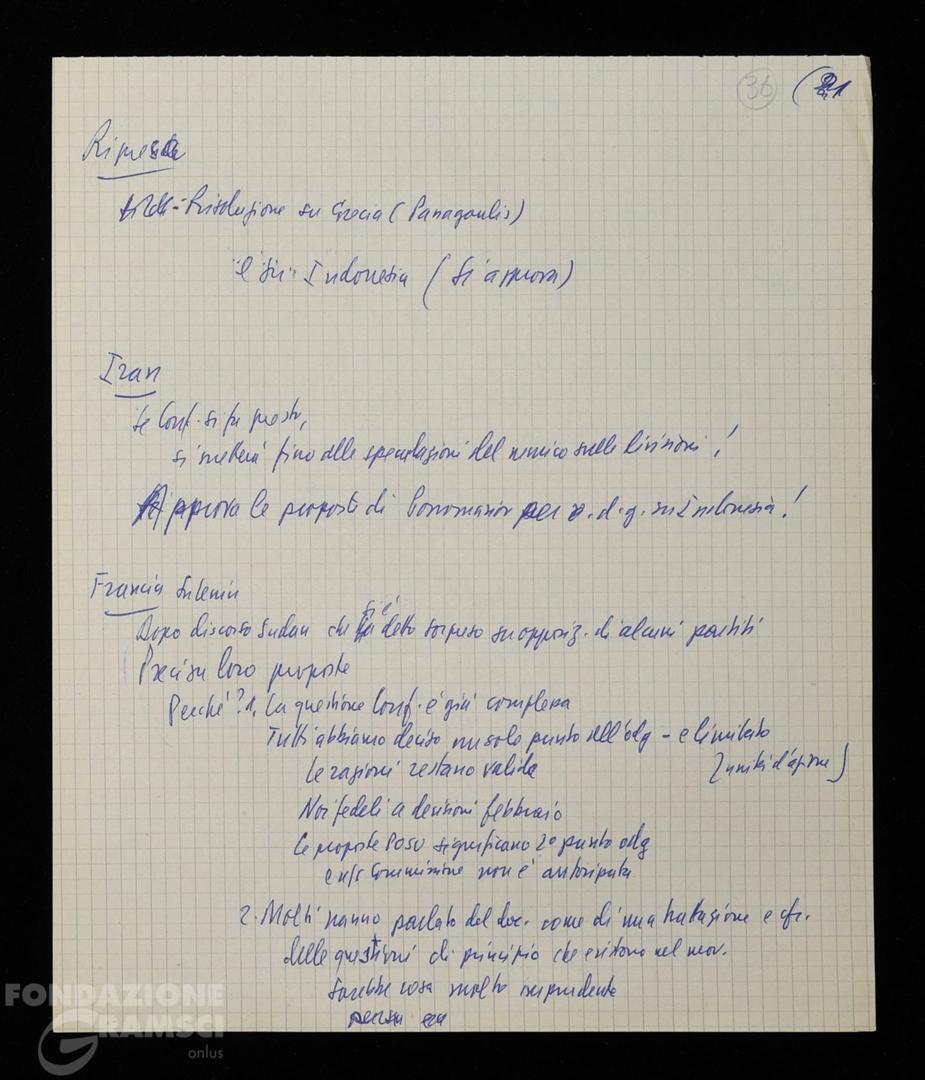 36 (21
Ripresa
Risoluzione su Grecia (Panagoulis)
e su Indonesia (si approva)
Iran
Se Conf. si fa presto,
si metterà fine alle speculazioni del nemico sulle divisioni!
Approva le proposte di per o.d.g. su Indonesia!
Francia
Dopo discorso Sudan che si è detto sorpreso su opposiz. di alcuni partiti
Precisa loro proposte
Perché? 1. La questione Conf. è già complessa
Tutti abbiamo deciso un solo punto all'odg - e limitato
Le ragioni restano valide [unità d'azione]
Noi fedeli a decisioni febbraio
Le proposte significano 2° punto odg
e ns Commissione non è autorizzata
2. Molti hanno parlato del doc. come di una trattazione e
delle questioni di principio che esistono nel mov.
Sarebbe cosa molto imprudente
FONDAZIONE
GRAMSCI
onlus